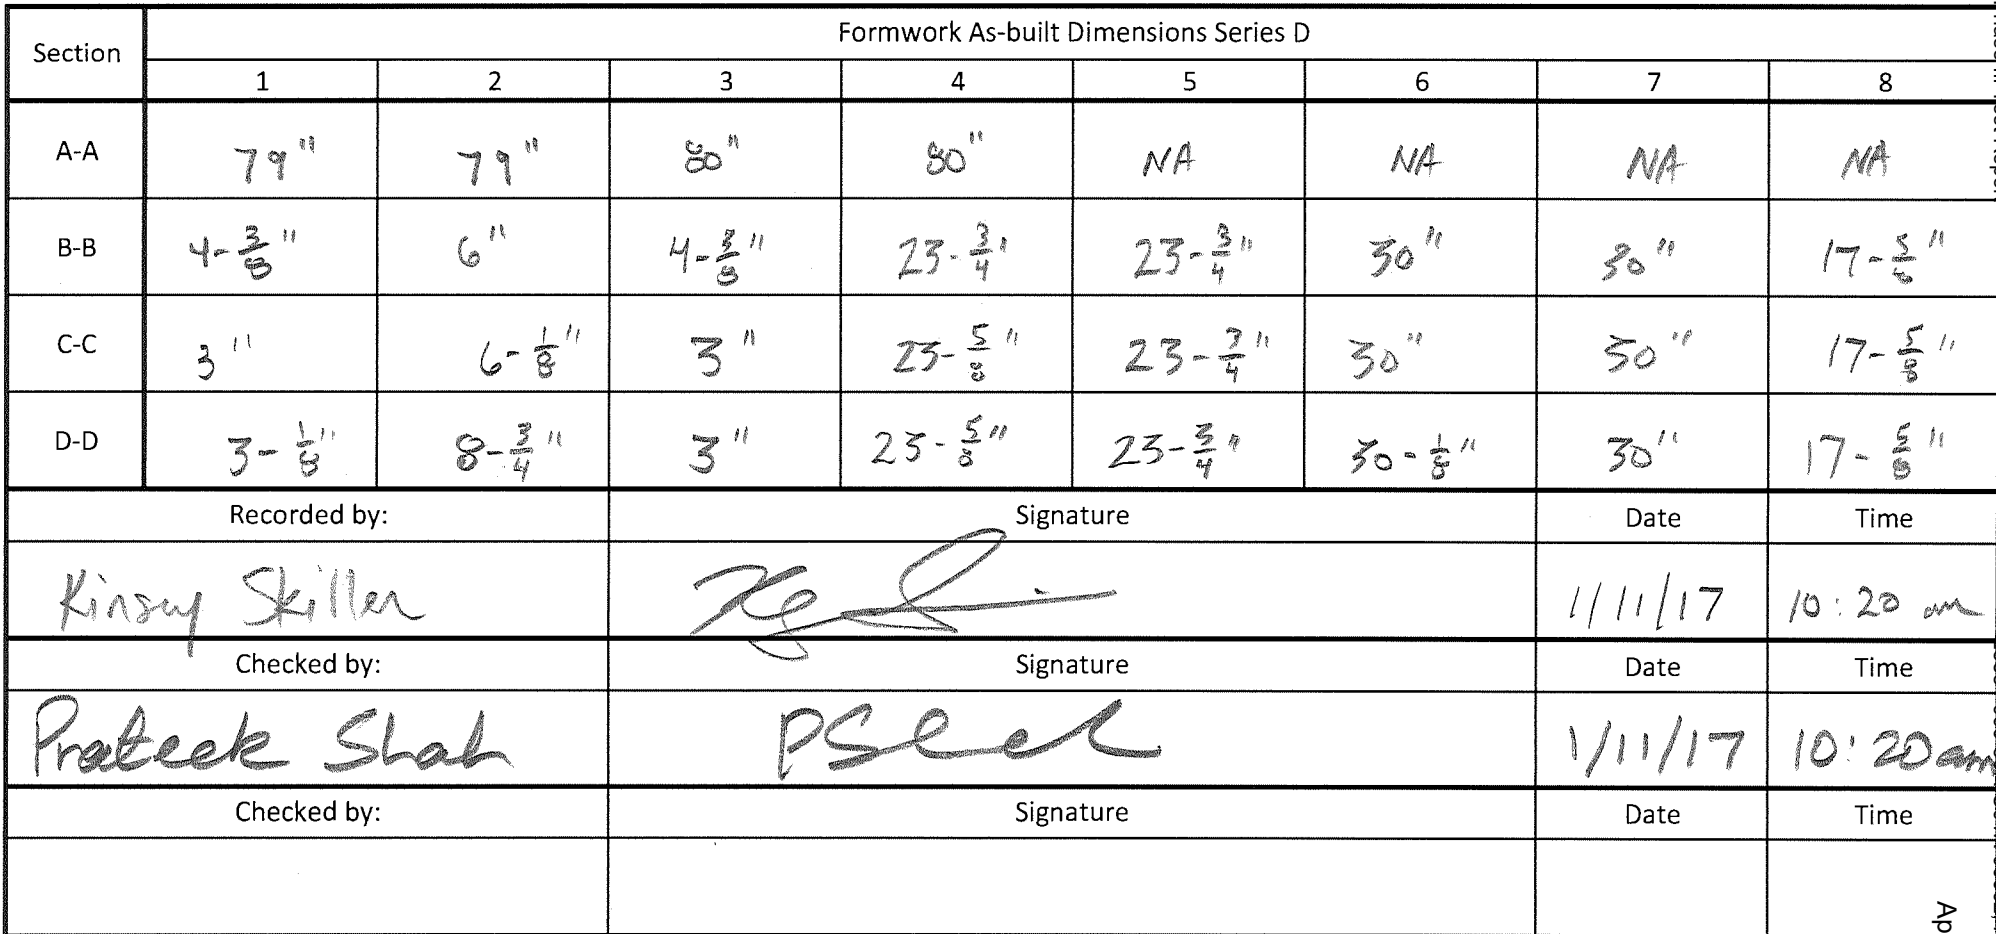 Formwork As-built Dimensions Series D
Section 1 2 3 4 5 6 7 8
A-A 79" 79" 80" 80" NA NA NA NA
B-B 4-3/8" 6" 4-3/8" 23-3/4" 23-3/4" 30" 30" 17-5/8"
C-C 3" 6-1/8" 3" 23-5/8" 23-3/4" 30" 30" 17-5/8"
D-D 3-1/8" 8-3/4" 3" 23-5/8" 23-3/4" 30-1/8" 30" 17-5/8"
Recorded by: Signature Date Time
Kinsey Skillen 1/11/17 10:20 am
Checked by: Signature Date Time
Prateek Shah PShah 1/11/17 10:20am
Checked by: Signature Date Time
Ap